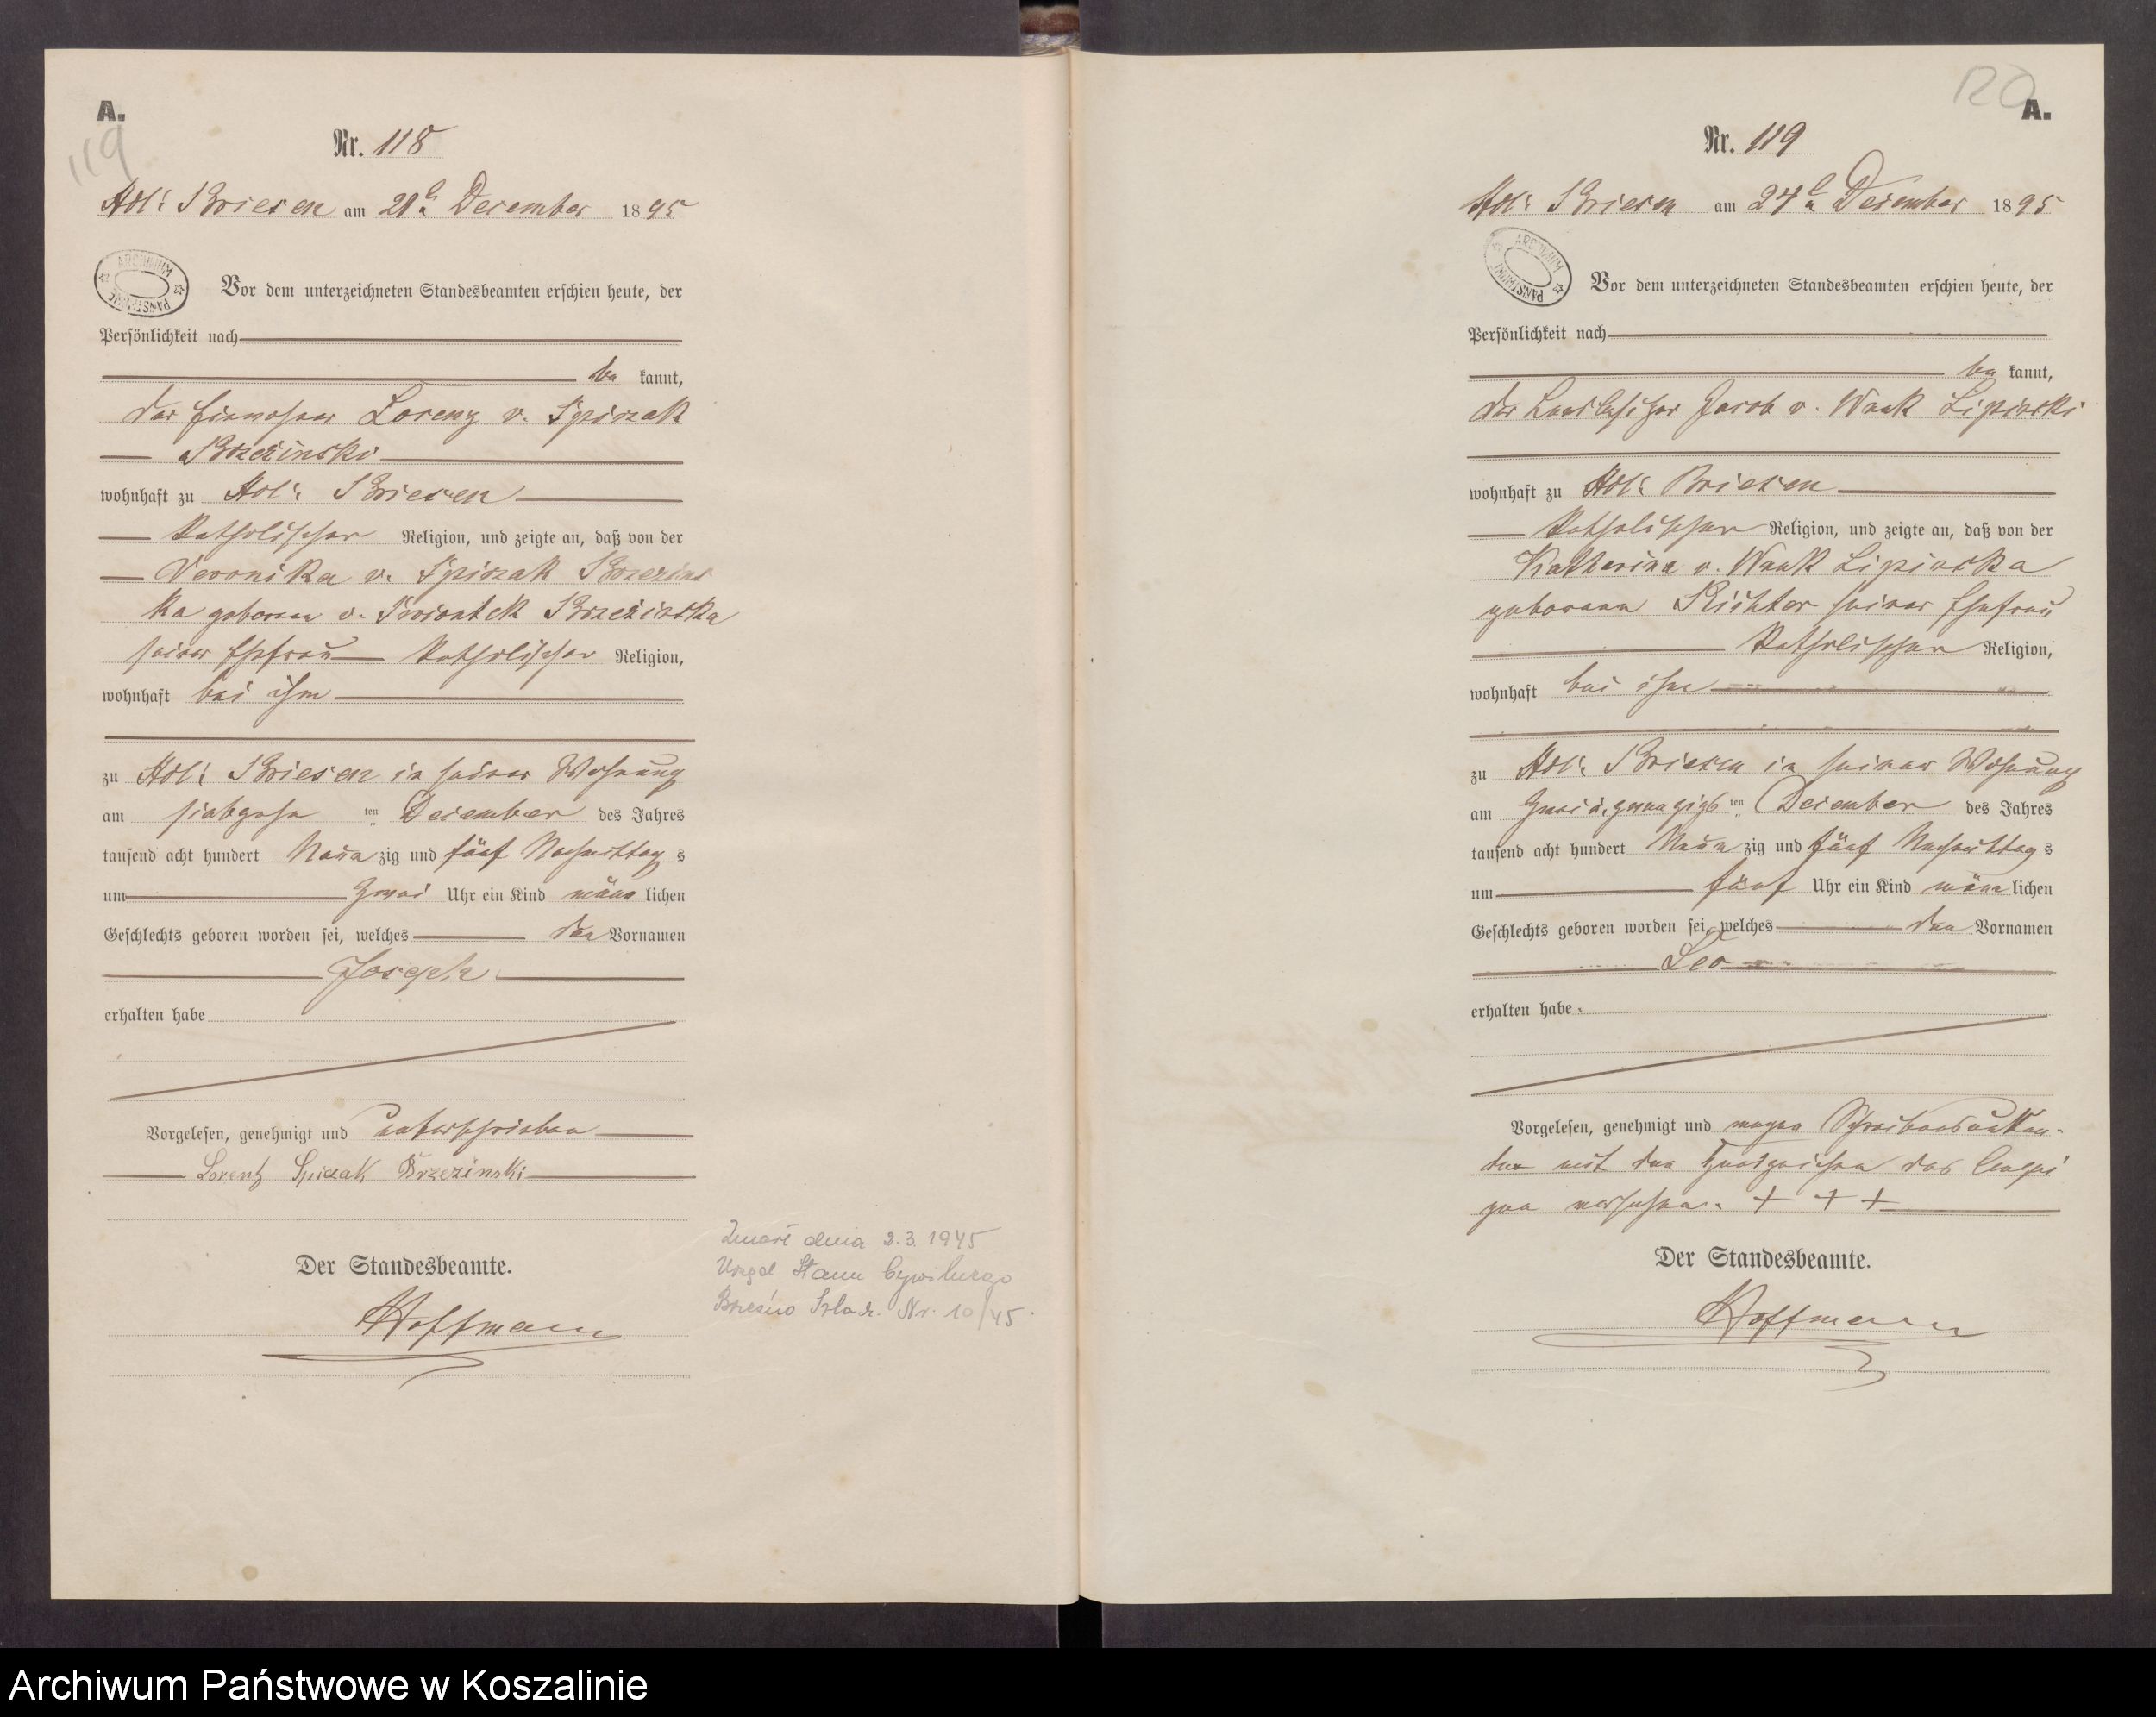 A.
119
Nr. 118
Adl: Briesen am 21ten December 1895
ARCHIWUM PAŃSTWOWE
Vor dem unterzeichneten Standesbeamten erschien heute, der
Persönlichkeit nach
be kannt,
der Einwohner Lorenz v. Spiczak
Brzezinski
wohnhaft zu Adl: Briesen
katholischer Religion, und zeigte an, daß von der
Veronika v. Spiczak Brzezins
ka geboren v. Brzezinska
seiner Ehefrau katholischer Religion,
wohnhaft bei ihm
zu Adl: Briesen in seiner Wohnung
am siebzehn ten December des Jahres
tausend acht hundert Neun zig und fünf Nachmittag s
um Zwei Uhr ein Kind männ lichen
Geschlechts geboren worden sei, welches den Vornamen
Joseph
erhalten habe
Vorgelesen, genehmigt und unterschrieben
Lorentz Spiczak Brzezinski
Der Standesbeamte.
Hoffmann
Zmarł dnia 2.3.1945
Urząd Stanu Cywilnego
Brzeźno Szlach. Nr. 10/45.
120
A.
Nr. 119
Adl: Briesen am 24ten December 1895
ARCHIWUM PAŃSTWOWE
Vor dem unterzeichneten Standesbeamten erschien heute, der
Persönlichkeit nach
be kannt,
der Jacob v. Wnuk Lipinski
wohnhaft zu Adl: Briesen
katholischer Religion, und zeigte an, daß von der
Katharina v. Wnuk Lipinska
geborenen Richter seiner Ehefrau
katholischer Religion,
wohnhaft bei ihm
zu Adl: Briesen in seiner Wohnung
am Zwei u. zwanzigs ten December des Jahres
tausend acht hundert Neun zig und fünf Nachmittag s
um fünf Uhr ein Kind männ lichen
Geschlechts geboren worden sei, welches den Vornamen
Leo
erhalten habe.
Vorgelesen, genehmigt und wegen Schreibensunkun-
de mit den Handzeichen des Anzei
gen versehen. + + +
Der Standesbeamte.
Hoffmann
Archiwum Państwowe w Koszalinie